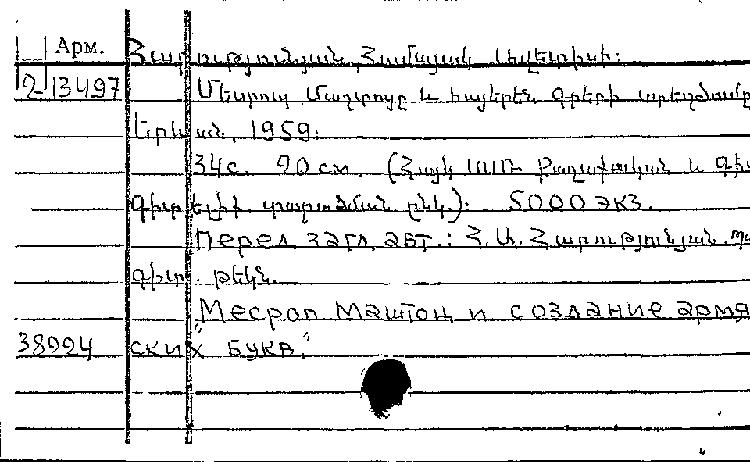 Арм.
Հարությունյան, Համայակ
2
13497
Մեսրոպ Մաշտոցը և հայերեն գրերի
Երևան, 1959.
34с. 20 см. (Հայկ ՍՍՌ քաղաքական և գի
գիտելիք. տարածման ընկ.): 5000 экз.
Перед загл. авт.: Հ. Ա. Հարությունյան.
գիտ. թեկն.
"Месроп Маштоц и создание армя
38994 ских букв."